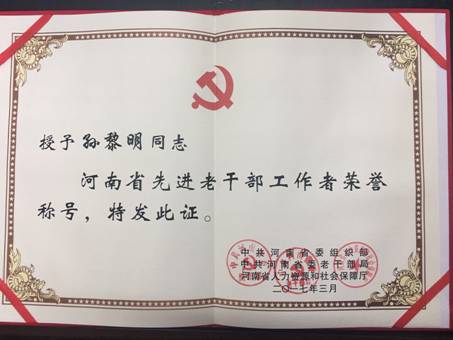 授予孙黎明同志
河南省先进老干部工作者荣誉
称号，特发此证。
中共河南省委组织部
中共河南省委老干部局
河南省人力资源和社会保障厅
二〇一七年三月